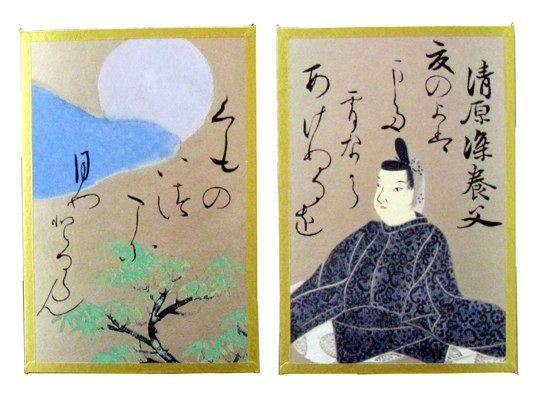 清原深養父
夏のよは
また
宵なから
あけぬるを
くもの
いつ
こに
月やとるらん